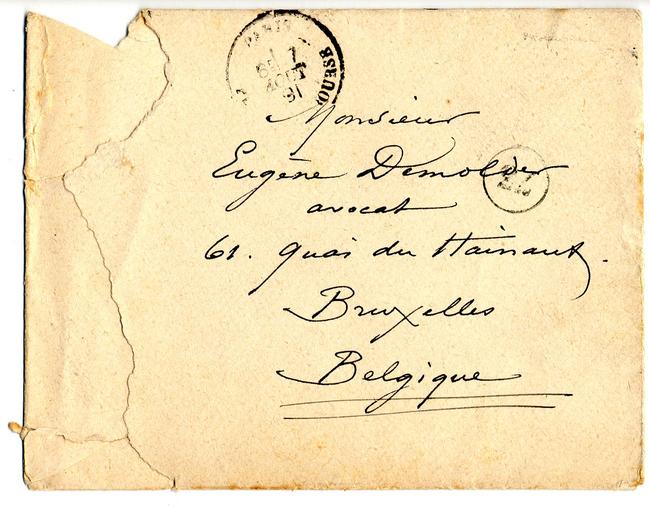 PARIS
BOURSE
AOUT
91
Monsieur
Eugène Demolder
avocat
61. Quai du Hainaut.
Bruxelles
Belgique